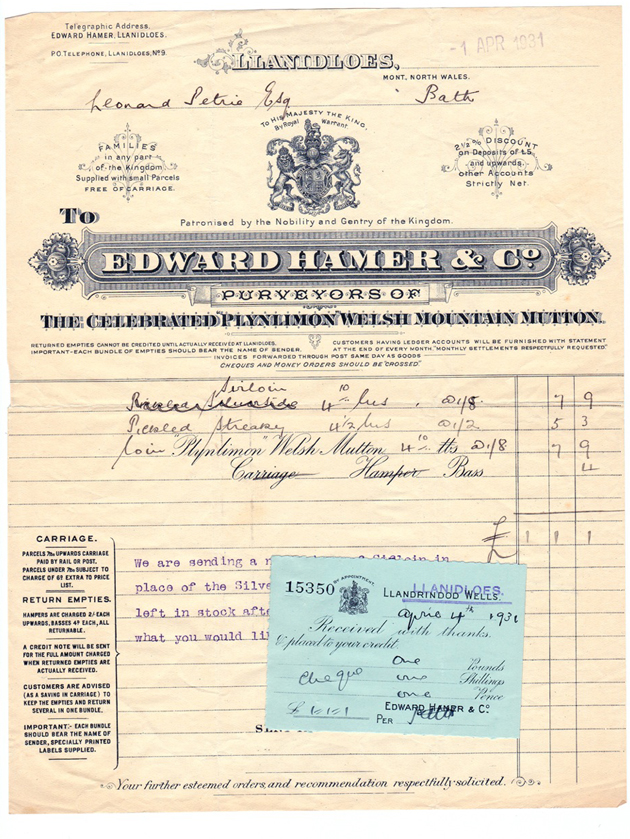 Telegraphic Address.
EDWARD HAMER, LLANIDLOES.
P.O. TELEPHONE, LLANIDLOES, No 9.
-1 APR 1931
LLANIDLOES,
MONT. NORTH WALES.
Leonard Petrie Esq Bath
To His Majesty The King.
By Royal Warrant
FAMILIES
in any part
of the Kingdom
Supplied with small Parcels
FREE OF CARRIAGE.
2½% DISCOUNT
on Deposits of £5
and upwards.
other Accounts
Strictly Net.
To
Patronised by the Nobility and Gentry of the Kingdom.
EDWARD HAMER & Co.
PURVEYORS OF
THE CELEBRATED "PLYNLIMON" WELSH MOUNTAIN MUTTON.
RETURNED EMPTIES CANNOT BE CREDITED UNTIL ACTUALLY RECEIVED AT LLANIDLOES.
IMPORTANT-EACH BUNDLE OF EMPTIES SHOULD BEAR THE NAME OF SENDER.
CUSTOMERS HAVING LEDGER ACCOUNTS WILL BE FURNISHED WITH STATEMENT
AT THE END OF EVERY MONTH. "MONTHLY SETTLEMENTS RESPECTFULLY REQUESTED."
INVOICES FORWARDED THROUGH POST SAME DAY AS GOODS
CHEQUES AND MONEY ORDERS SHOULD BE "CROSSED."
Sirloin
4 10 lbs @ 1/8 7 9
Pickled Streaky 4½ lbs @ 1/2 5 3
Loin "Plynlimon" Welsh Mutton 4 10 lbs @ 1/8 7 9
Carriage Hamper Bass 4
£ 1 1 1
CARRIAGE.
PARCELS 7lbs UPWARDS CARRIAGE
PAID BY RAIL OR POST.
PARCELS UNDER 7lbs SUBJECT TO
CHARGE OF 6D EXTRA TO PRICE
LIST.
RETURN EMPTIES.
HAMPERS ARE CHARGED 2/- EACH
UPWARDS, BASSES 4D EACH, ALL
RETURNABLE.
A CREDIT NOTE WILL BE SENT
FOR THE FULL AMOUNT CHARGED
WHEN RETURNED EMPTIES ARE
ACTUALLY RECEIVED.
CUSTOMERS ARE ADVISED
(AS A SAVING IN CARRIAGE) TO
KEEP THE EMPTIES AND RETURN
SEVERAL IN ONE BUNDLE.
IMPORTANT:- EACH BUNDLE
SHOULD BEAR THE NAME OF
SENDER, SPECIALLY PRINTED
LABELS SUPPLIED.
We are sending a Sirloin in
place of the
left in stock
what you would
15350
BY APPOINTMENT
LLANIDLOES.
LLANDRINDOD WELLS.
April 4th 1931
Received with thanks.
& placed to your credit
one Pounds
Cheque one Shillings
one Pence
£ 1-1-1
EDWARD HAMER & Co.
PER
Your further esteemed orders, and recommendation respectfully solicited.